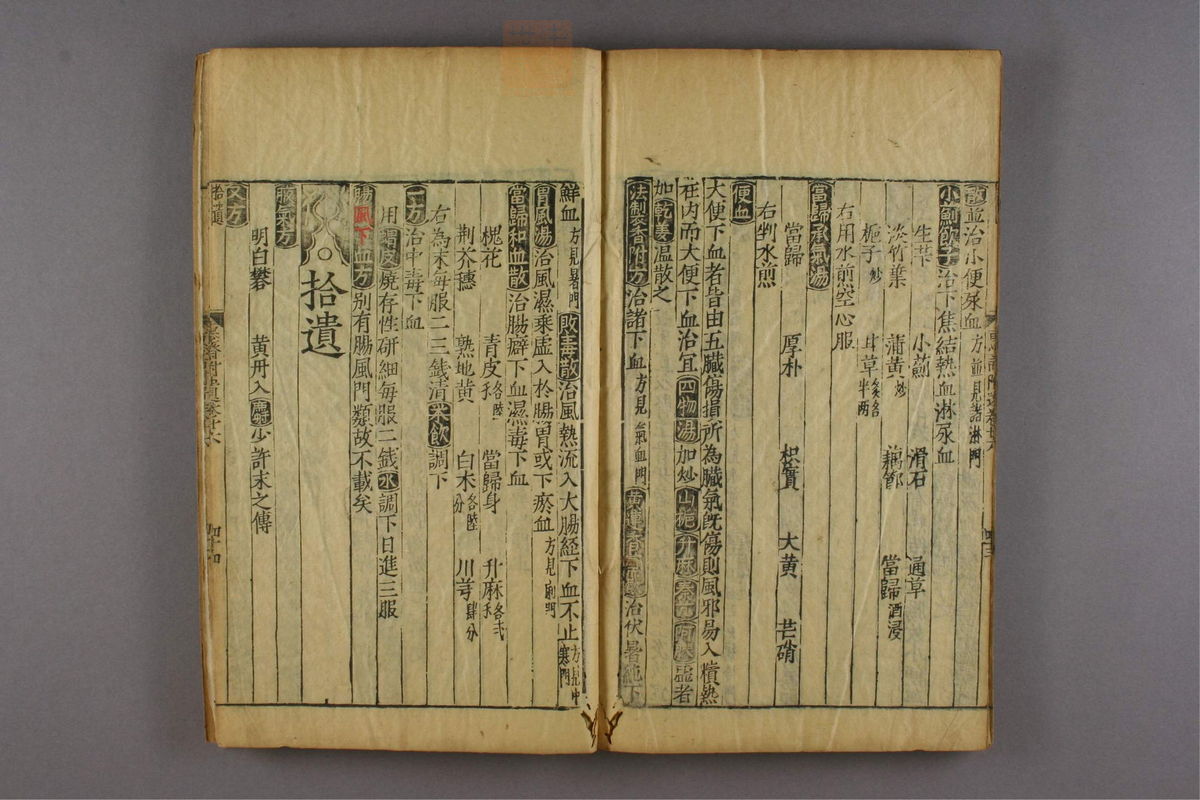 散並治小便尿血方並見諸淋門
小薊飲子治下焦結熱血淋尿血
生芐 小薊 滑石 通草
淡竹葉 蒲黃炒 藕節 當歸酒浸
梔子炒 甘草炙各半兩
右用水煎空心服
當歸承氣湯
當歸 厚朴 枳實 大黄 芒硝
右剉水煎
便血
大便下血者皆由五臟傷損所為臟氣既傷則風邪易入積熱
在内而大便下血治宜四物湯加炒山梔升麻秦艽阿膠虛者
加乾姜温散之
法製香附方治諸下血方見氣血門黄連治伏暑純下
鮮血方見暑門敗毒散治風熱流入大腸経下血不止方見中寒門
胃風湯治風濕乘虚入於腸胃或下瘀血方見痢門
當歸和血散治腸癖下血濕毒下血
槐花 青皮各陸分 當歸身 升麻各弍
荆芥穗 熟地黄 白朮各陸分 川芎肆分
右為末每服二三錢清米飲調下
一方治中毒下血
用猬皮燒存性研細每服二錢水調下日進三服
腸風下血方别有腸風門類故不載矣
拾遺
腋氣方
明白礬 黄丹入麝少許末之傳
又方
拾遺